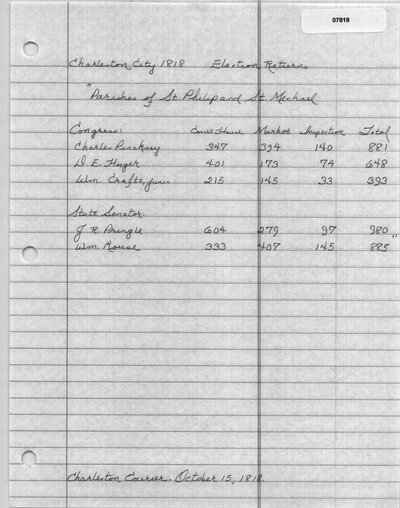 07818
Charleston City 1818 Election Returns
"Parishes of St. Philip and St. Michael
Congress: Court House Market Inspection Total
Charles Pinckney 347 394 140 881
D. E. Huger 401 173 74 648
Wm. Crafts, Jun. 215 145 33 393
State Senator:
J. R. Pringle 604 279 97 980
Wm. Rouse 333 407 145 885"
Charleston Courier. October 15, 1818.